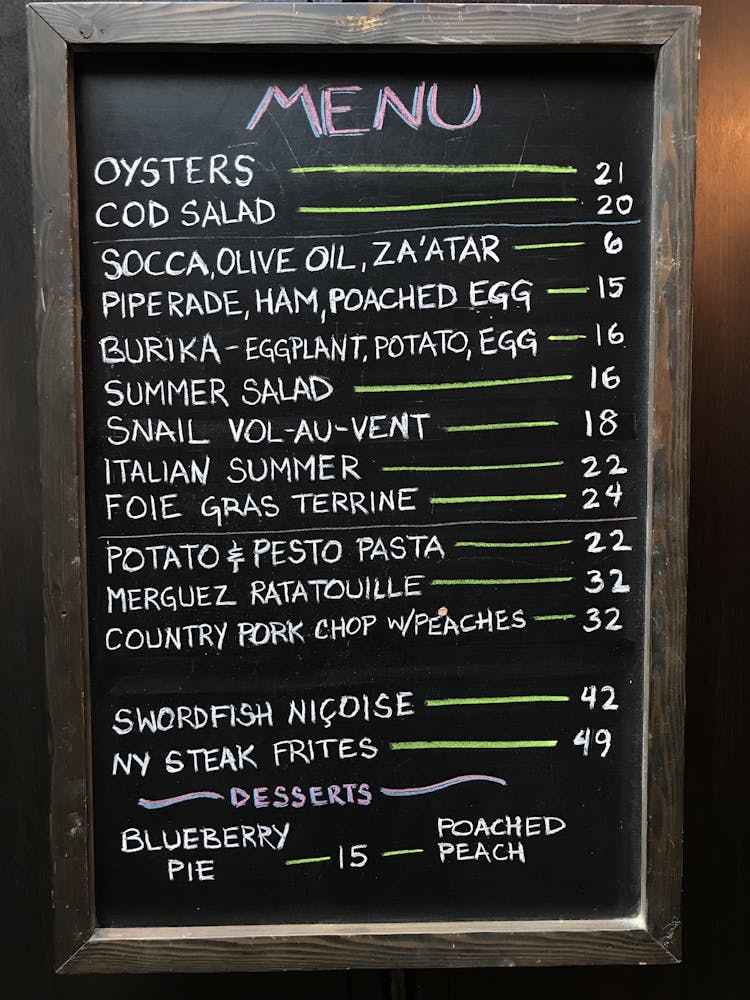 MENU
OYSTERS 21
COD SALAD 20
SOCCA, OLIVE OIL, ZA'ATAR 6
PIPERADE, HAM, POACHED EGG 15
BURIKA - EGGPLANT, POTATO, EGG 16
SUMMER SALAD 16
SNAIL VOL-AU-VENT 18
ITALIAN SUMMER 22
FOIE GRAS TERRINE 24
POTATO & PESTO PASTA 22
MERGUEZ RATATOUILLE 32
COUNTRY PORK CHOP W/PEACHES 32
SWORDFISH NIÇOISE 42
NY STEAK FRITES 49
DESSERTS
BLUEBERRY PIE 15 POACHED PEACH